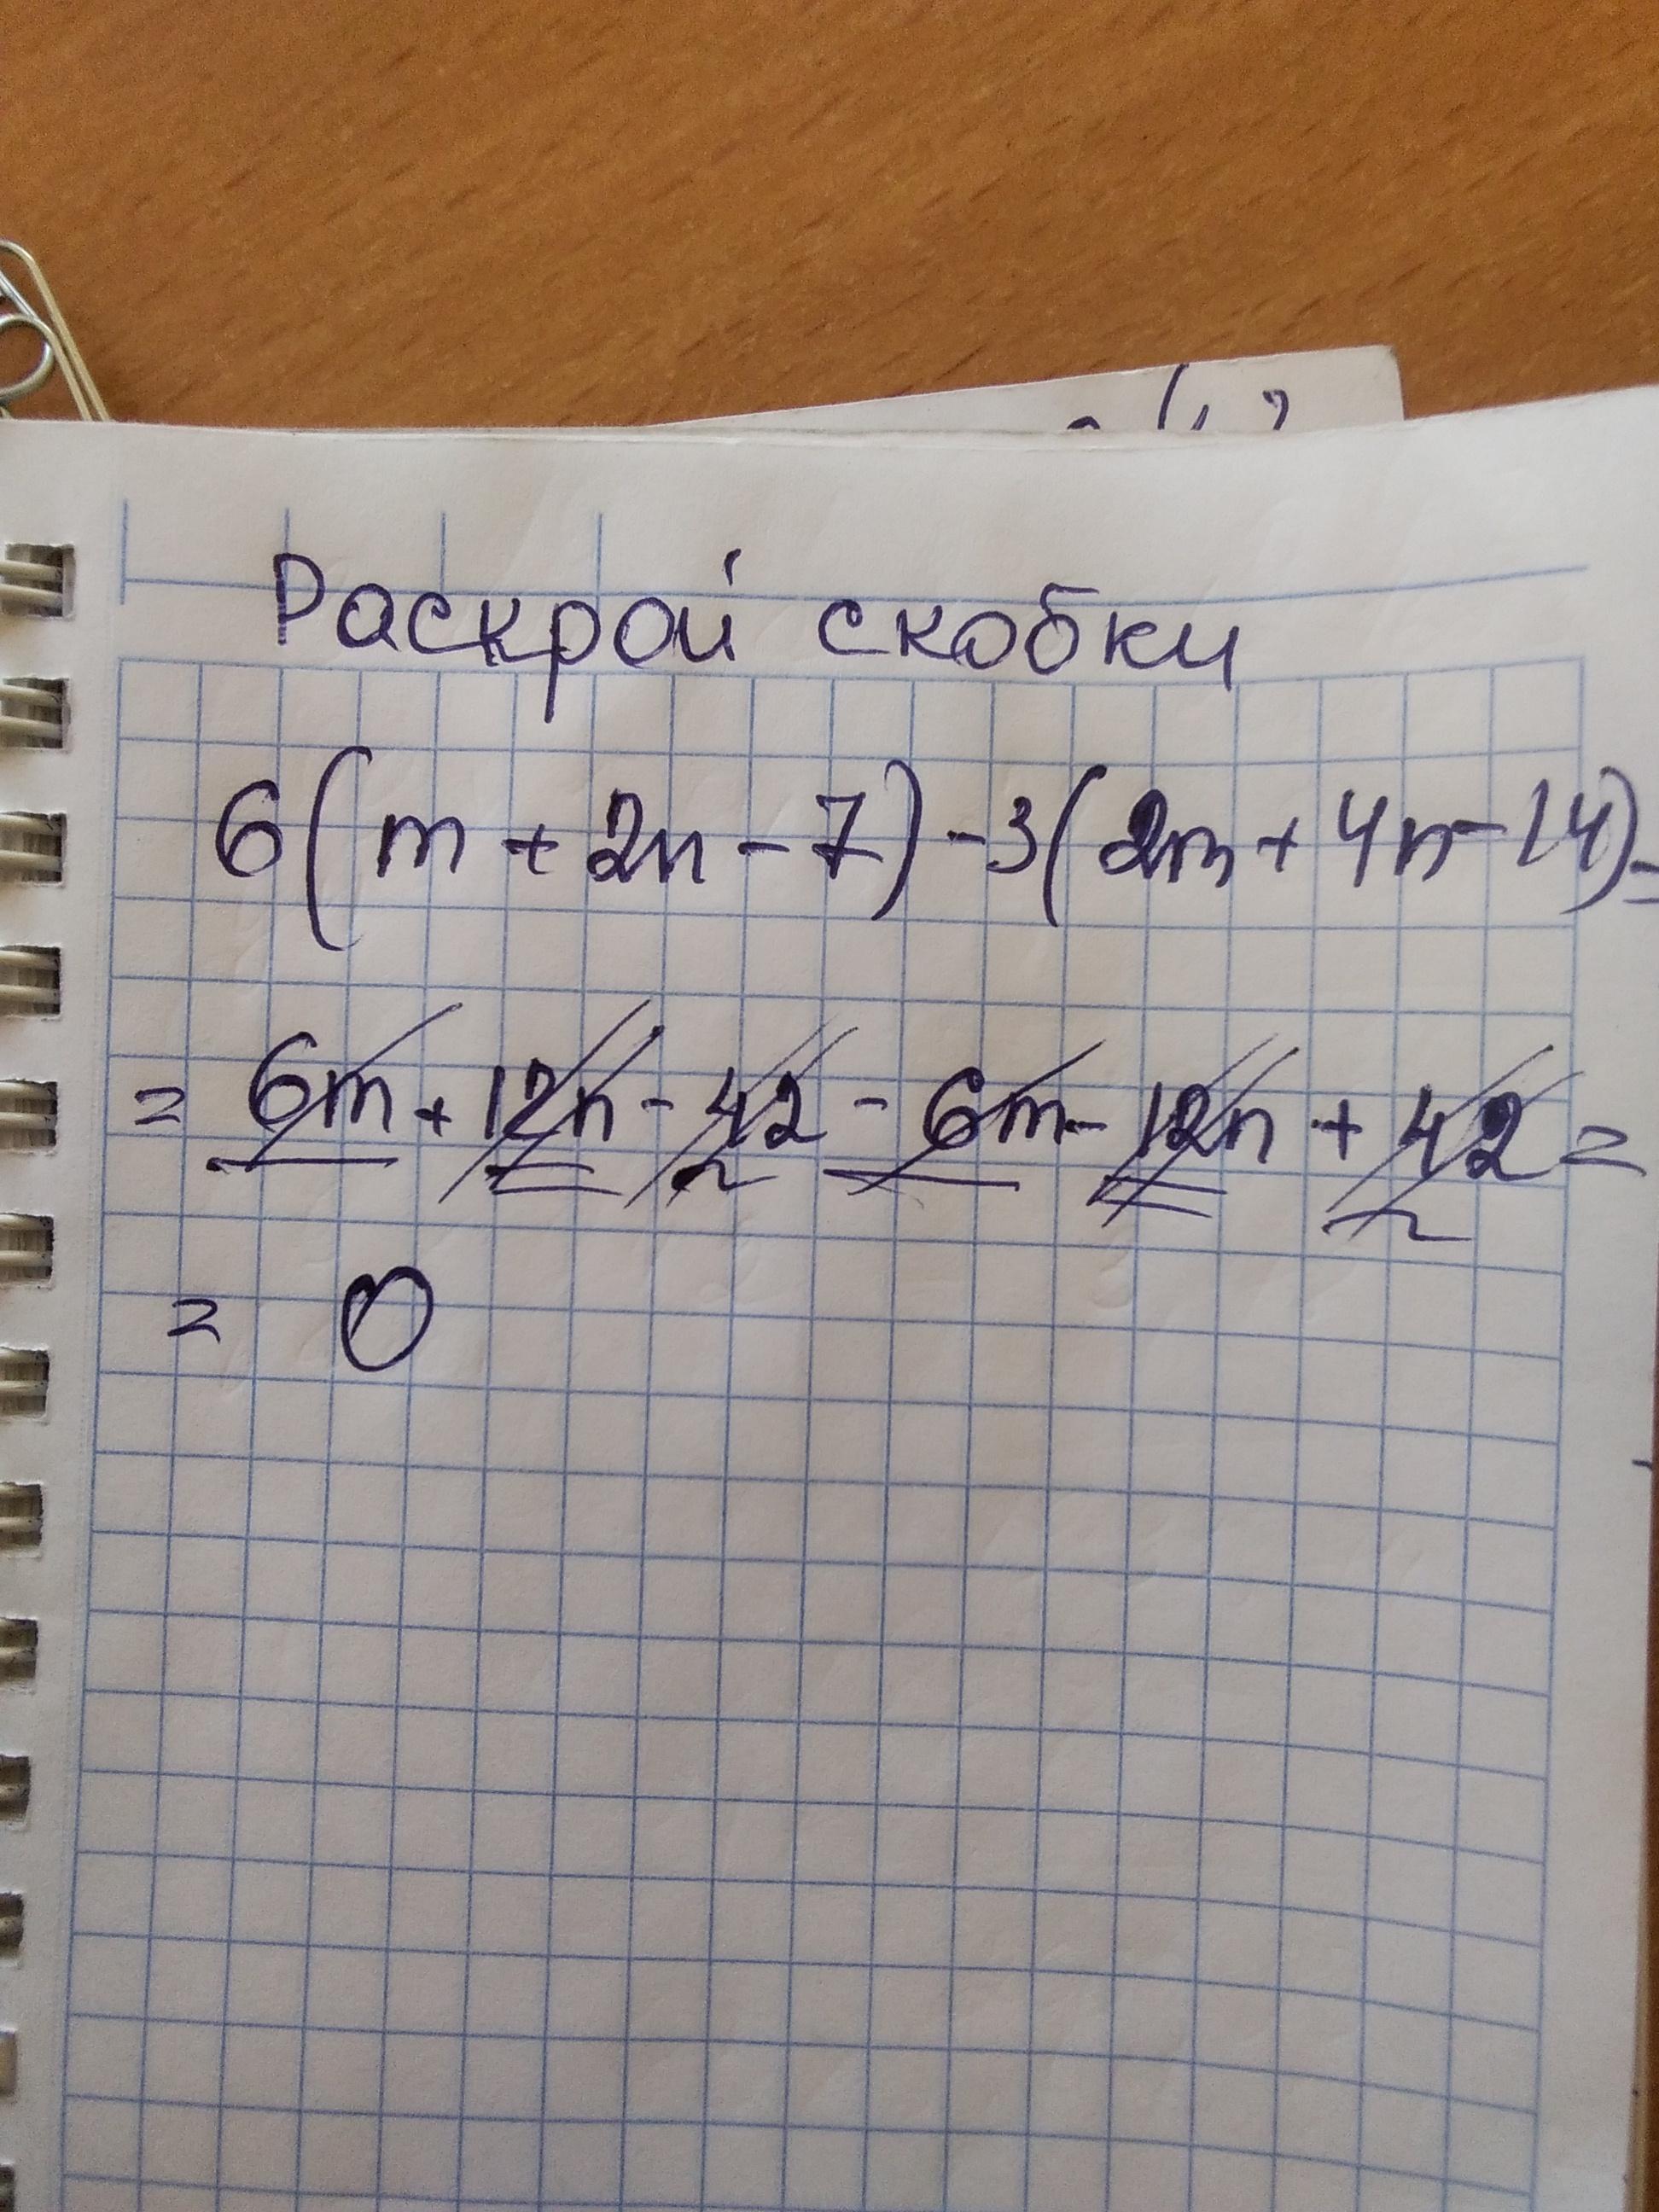 Раскрой скобки
6(m + 2n - 7) - 3(2m + 4n - 14) =
= 6m + 12n - 42 - 6m - 12n + 42 =
= 0